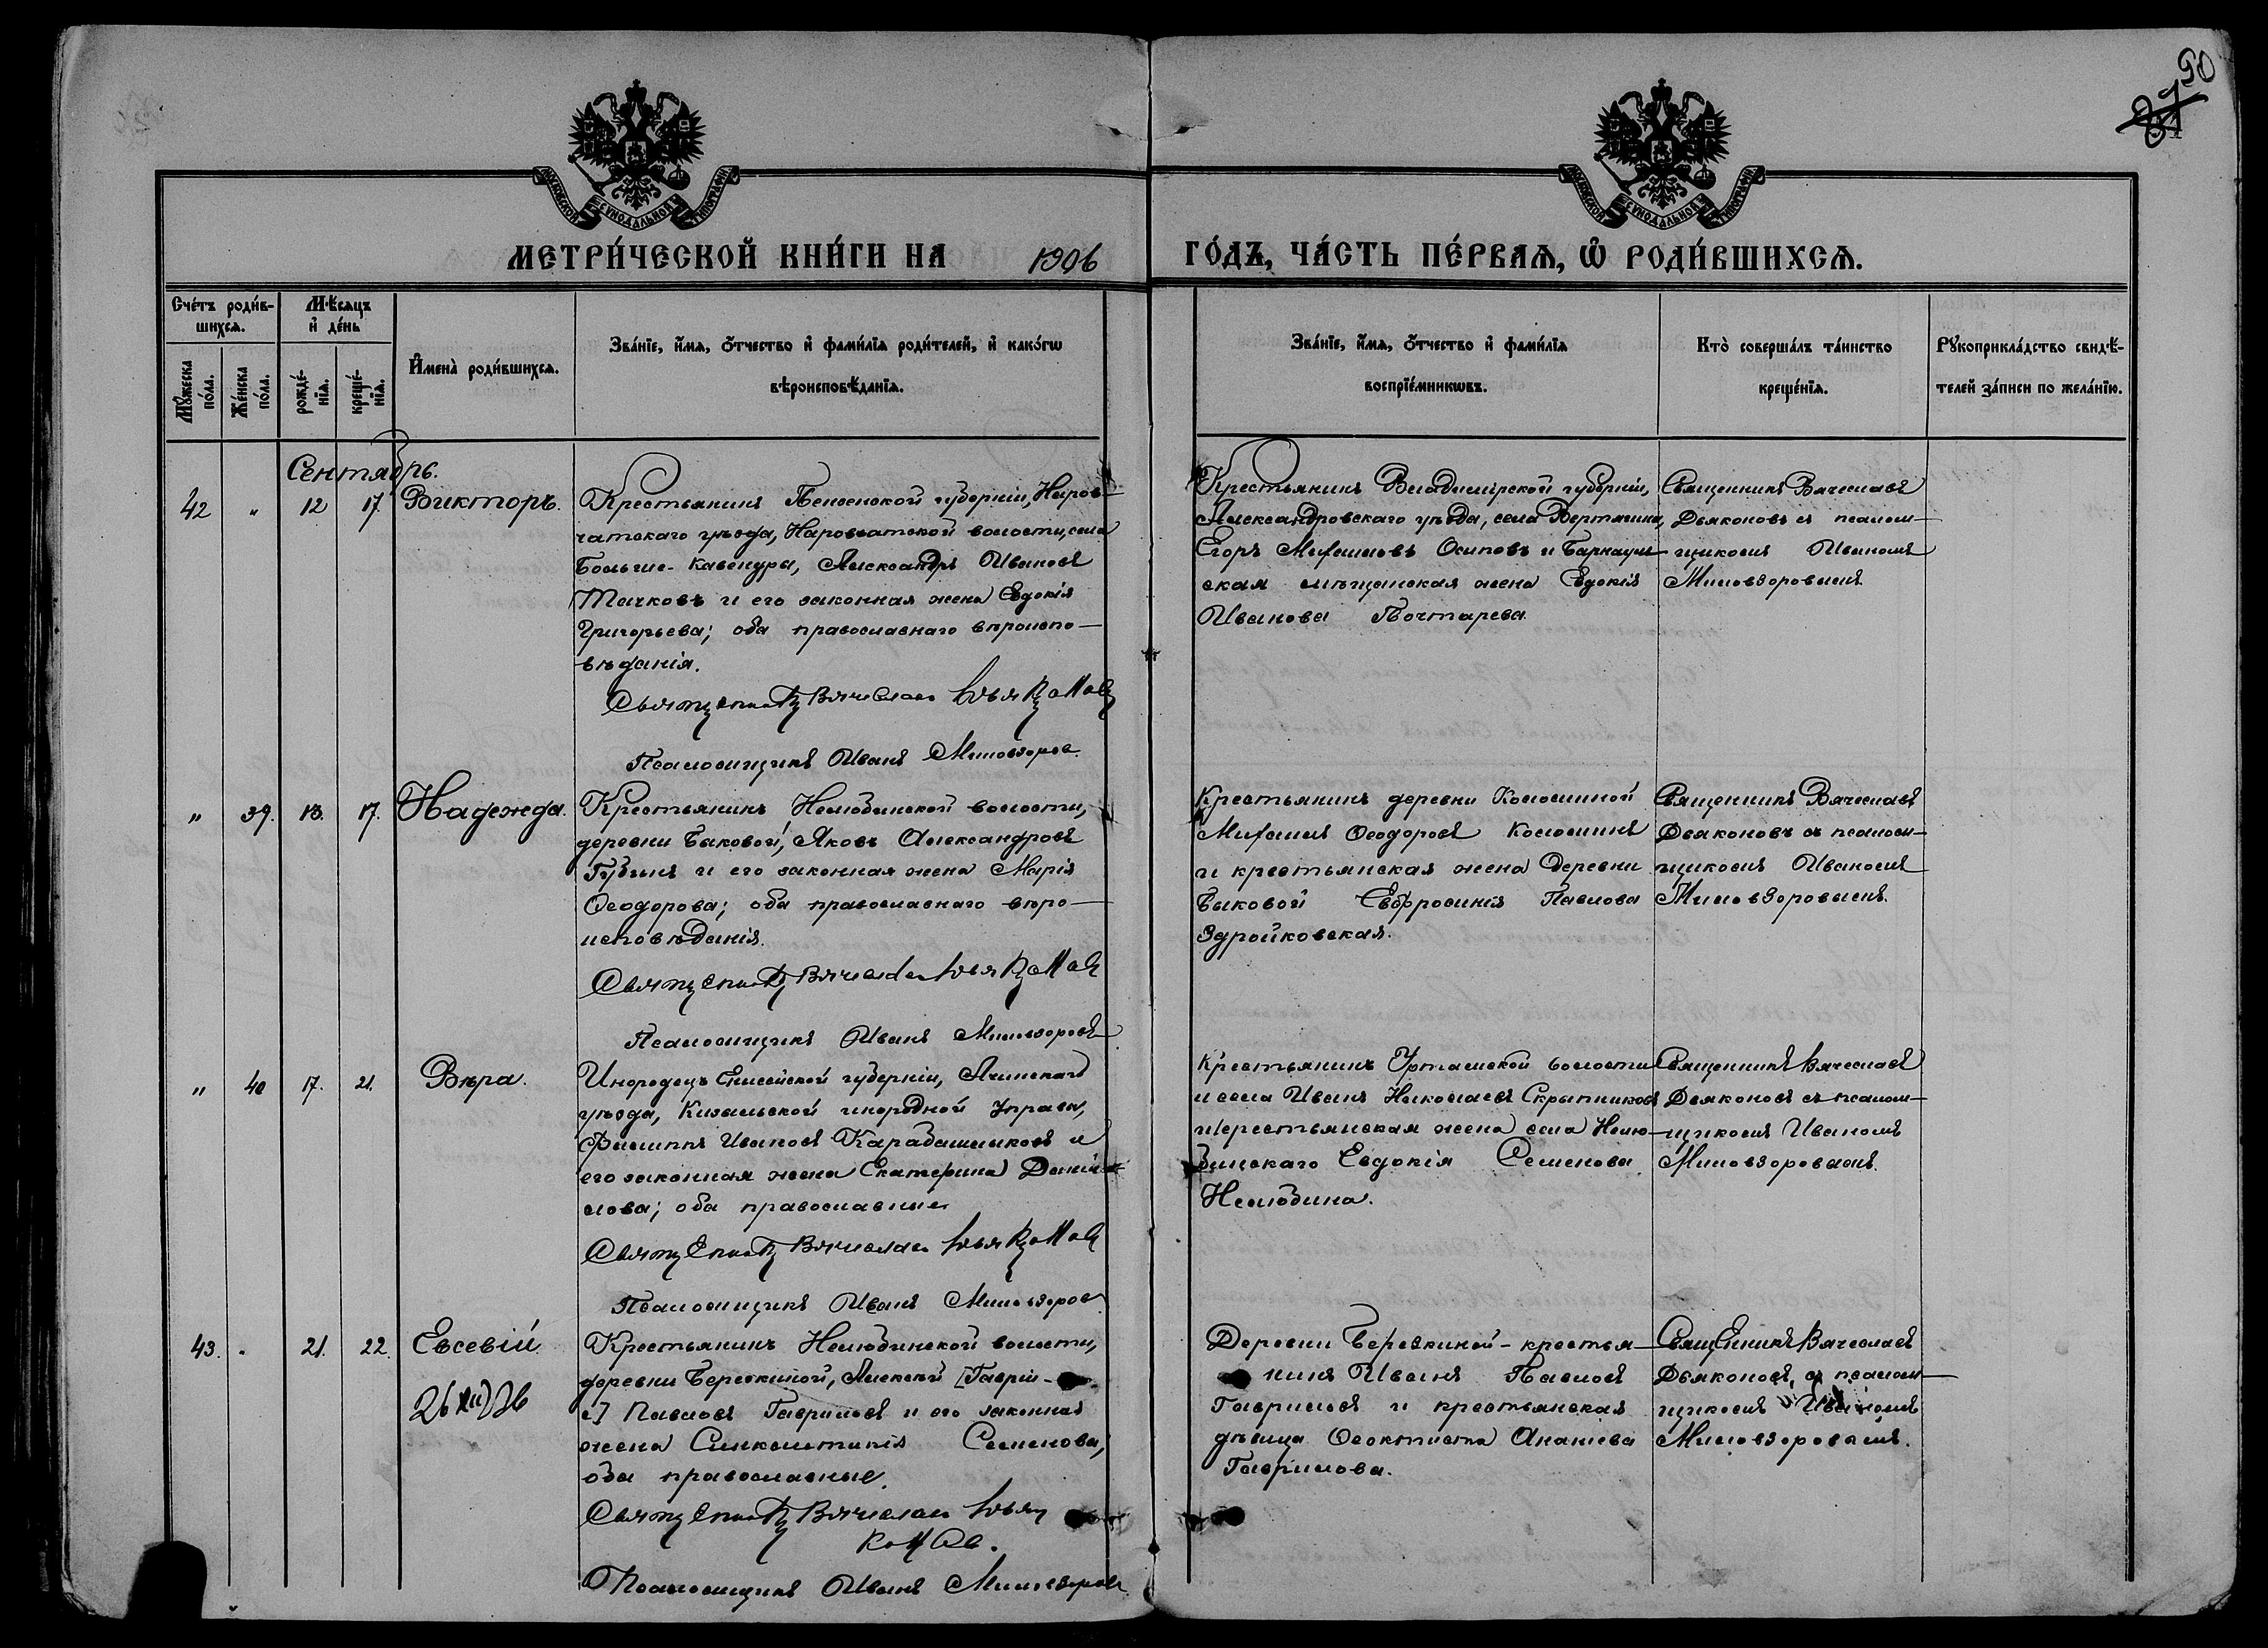 90
МОСКОВСКОЙ СѴНОДАЛЬНОЙ ТИПОГРАФІИ
МОСКОВСКОЙ СѴНОДАЛЬНОЙ ТИПОГРАФІИ
МЕТРИ́ЧЕСКОЙ КНИ́ГИ НА 1906 ГО́ДЪ, ЧА́СТЬ ПЕ́РВАѦ, Ѡ҆ РОДИ́ВШИХСѦ.
Сче́тъ роди́в-
шихсѧ.
Мꙋ́жеска по́ла.
Же́нска по́ла.
Мѣ́сѧцъ
и҆ де́нь
рожде́-
нїѧ.
креще́-
нїѧ.
И҆мена̀ роди́вшихсѧ.
Зва́нїе, и҆́мѧ, ѻ҆́тчество и҆ фами́лїѧ роди́телей, и҆ како́гѡ
вѣроисповѣ́данїѧ.
Зва́нїе, и҆́мѧ, ѻ҆́тчество и҆ фами́лїѧ
воспрїе́мникѡвъ.
Кто̀ соверша́лъ та́инство
креще́нїѧ.
Рꙋкоприкла́дство свидѣ́-
телей за́писи по жела́нїю.
Сентябрь.
42 " 12 17 Викторъ.
Крестьянинъ Пензенской губерніи, Наров-
чатскаго уѣзда, Наровчатской волости, села
Большіе-Кавендры, Александръ Ивановъ
Тачковъ и его законная жена Евдокія
Григорьева; оба православнаго вѣроиспо-
вѣданія.
Священникъ Вячеславъ Дьяконовъ
Псаломщикъ Иванъ Миловзоровъ.
Крестьянинъ Владимірской губерніи,
Александровскаго уѣзда, села Вертягина,
Егоръ Михаиловъ Осиповъ и Барнауль-
ская мѣщанская жена Евдокія
Иванова Почтарева.
Священникъ Вячеславъ
Дьяконовъ съ псалом-
щикомъ Иваномъ
Миловзоровымъ.
" 39. 13. 17. Надежда.
Крестьянинъ Нелюбинской волости,
деревни Быковой, Яковъ Александровъ
Губинъ и его законная жена Марія
Ѳеодорова; оба православнаго вѣро-
исповѣданія.
Священникъ Вячеславъ Дьяконовъ
Псаломщикъ Иванъ Миловзоровъ
Крестьянинъ деревни Коломиной
Михаилъ Ѳеодоровъ Коломинъ
и крестьянская жена деревни
Быковой Евфросинія Павлова
Здройковская.
Священникъ Вячеславъ
Дьяконовъ съ псалом-
щикомъ Иваномъ
Миловзоровымъ.
" 40 17. 21. Вѣра.
Инородецъ Енисейской губерніи, Ачинскаго
уѣзда, Кизыльской инородной Управы,
Филиппъ Ивановъ Карабашлыковъ и
его законная жена Екатерина Дани-
лова; оба православные
Священникъ Вячеславъ Дьяконовъ
Псаломщикъ Иванъ Миловзоровъ.
Крестьянинъ Уртамской волости
и села Иванъ Николаевъ Скрыпниковъ
и крестьянская жена села Нелю-
бинскаго Евдокія Семенова
Нелюбина.
Священникъ Вячеславъ
Дьяконовъ съ псалом-
щикомъ Иваномъ
Миловзоровымъ.
43. " 21. 22. Евсевій.
26 XII 26
Крестьянинъ Нелюбинской волости,
деревни Березкиной, Алексѣй [Гаври-
л] Павловъ Гавриловъ и его законная
жена Синклитикія Семенова,
оба православные.
Священникъ Вячеславъ Дьяконовъ.
Псаломщикъ Иванъ Миловзоровъ
Деревни Березкиной - крестья-
нинъ Иванъ Павловъ
Гавриловъ и крестьянская
дѣвица Ѳеоктиста Ананіева
Гаврилова.
Священникъ Вячеславъ
Дьяконовъ, съ псалом-
щикомъ Иваномъ
Миловзоровымъ.